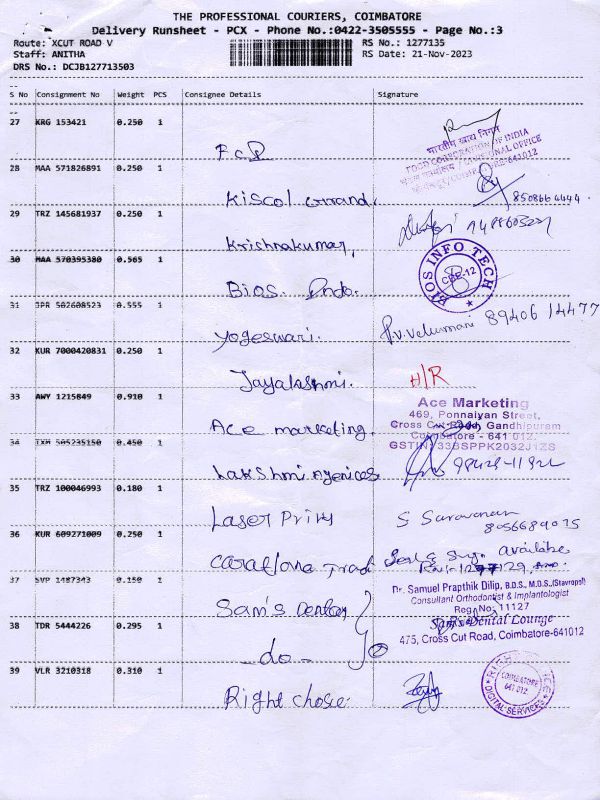 THE PROFESSIONAL COURIERS, COIMBATORE
Delivery Runsheet - PCX - Phone No.:0422-3505555 - Page No.:3
Route: XCUT ROAD V
RS No.: 1277135
Staff: ANITHA
RS Date: 21-Nov-2023
DRS No.: DCJB127713503
S No Consignment No Weight PCS Consignee Details Signature
27 KRG 153421 0.250 1
भारतीय खाद्य निगम
FOOD CORPORATION OF INDIA
28 MAA 571826891 0.250 1
Kiscol Grand.
8508664444.
29 TRZ 145681937 0.250 1
Krishnakumar,
30 MAA 570395380 0.565 1
BIOS INFO TECH
CBE-12
Bios Info.
31 JPR 502608523 0.555 1
Yogeswari.
P.V. Velumani 89406 14477
32 KUR 7000420831 0.250 1
Jayalakshmi.
H/R
33 AWY 1215849 0.910 1
Ace Marketing
469, Ponnaiyan Street,
Cross Cut Road, Gandhipuram
Coimbatore - 641 012.
GSTIN: 33BSPPK2032J1ZS
Ace marketing.
34 TXM 505235150 0.450 1
Lakshmi Agenices
35 TRZ 100046993 0.180 1
Laser Prins
S Saravanan
8056689075
36 KUR 609271009 0.250 1
Caratlane Trad
available
37 SVP 1487343 0.150 1
Dr. Samuel Prapthik Dilip, B.D.S., M.D.S.,(Stavropol)
Consultant Orthodontist & Implantologist
Reg.No. 11127
Sam's Dental Lounge
475, Cross Cut Road, Coimbatore-641012
Sam's Dental
38 TDR 5444226 0.295 1
- do -
39 VLR 3210318 0.310 1
Right choise.
COIMBATORE
641 012.
DIGITAL SERVICES